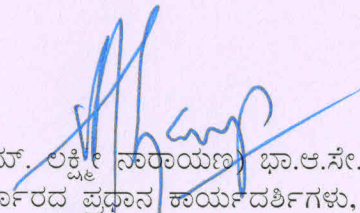 ಲಕ್ಷ್ಮೀ ನಾರಾಯಣ) ಭಾ.ಆ.ಸೇ.
ಪ್ರಧಾನ ಕಾರ್ಯದರ್ಶಿಗಳು,